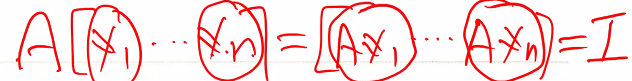 A[x₁ ... xₙ] = [Ax₁ ... Axₙ] = I